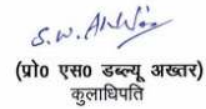 S.W. Akhtar
(प्रो० एस० डब्ल्यू अख्तर)
कुलाधिपति